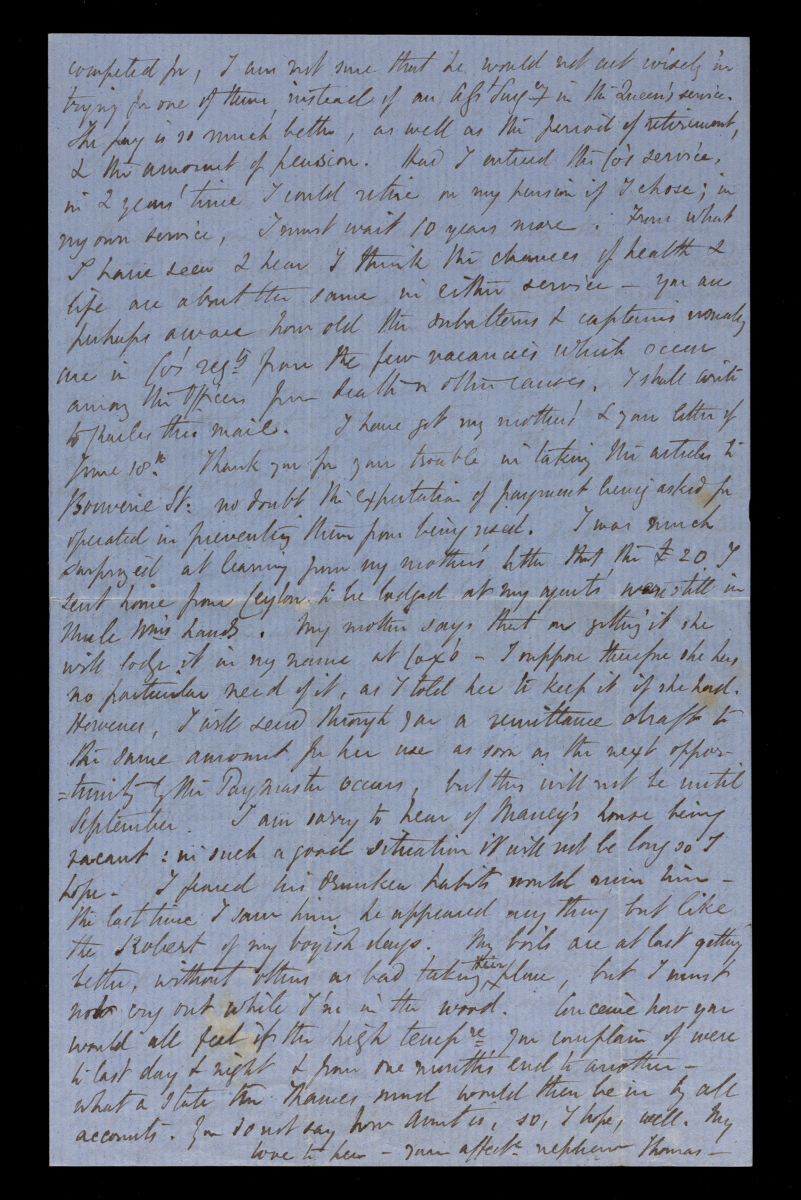 competed for, I am not sure that he would not act wisely in
trying for one of them, instead of an Asst Surgy in the Queen's service.
The pay is so much better, as well as the period of retirement,
& the amount of pension. Had I entered the Co's service,
in 2 years' time I could retire on my pension if I chose; in
my own service, I must wait 10 years more. From what
I have seen & hear I think the chances of health &
life are about the same in either service – you are
perhaps aware how old the subalterns & captains usually
are in Co's regts from the few vacancies which occur
among the officers from death or other causes. I shall write
to Charles this mail. I have got my mother's & your letter of
June 18th. Thank you for your trouble in taking the articles to
Bouverie St: no doubt the expectation of payment being asked for
operated in preventing them from being used. I was much
surprized at learning from my mother's letter that the £20 I
sent home from Ceylon to be lodged at my agents' were still in
Uncle Wm's hands. My mother says that on getting it she
will lodge it in my name at Cox's – I suppose therefore she has
no particular need of it, as I told her to keep it if she had.
However, I will send through you a remittance draft to
the same amount for her use as soon as the next oppor-
=tunity by the Paymaster occurs, but this will not be until
September. I am sorry to hear of Maney's house being
vacant: in such a good situation it will not be long so I
hope – I feared his drunken habits would ruin him –
the last time I saw him he appeared any thing but like
the Robert of my boyish days. My boils are at last getting
better, without others as bad taking their place, but I must
not cry out while I'm in the wood. Conceive how you
would all feel if the high tempre you complain of were
to last day & night & from one month's end to another –
what a state the Thames mud would then be in by all
accounts. You do not say how Aunt is, so, I hope, well. My
love to her – your affecte nephew Thomas –